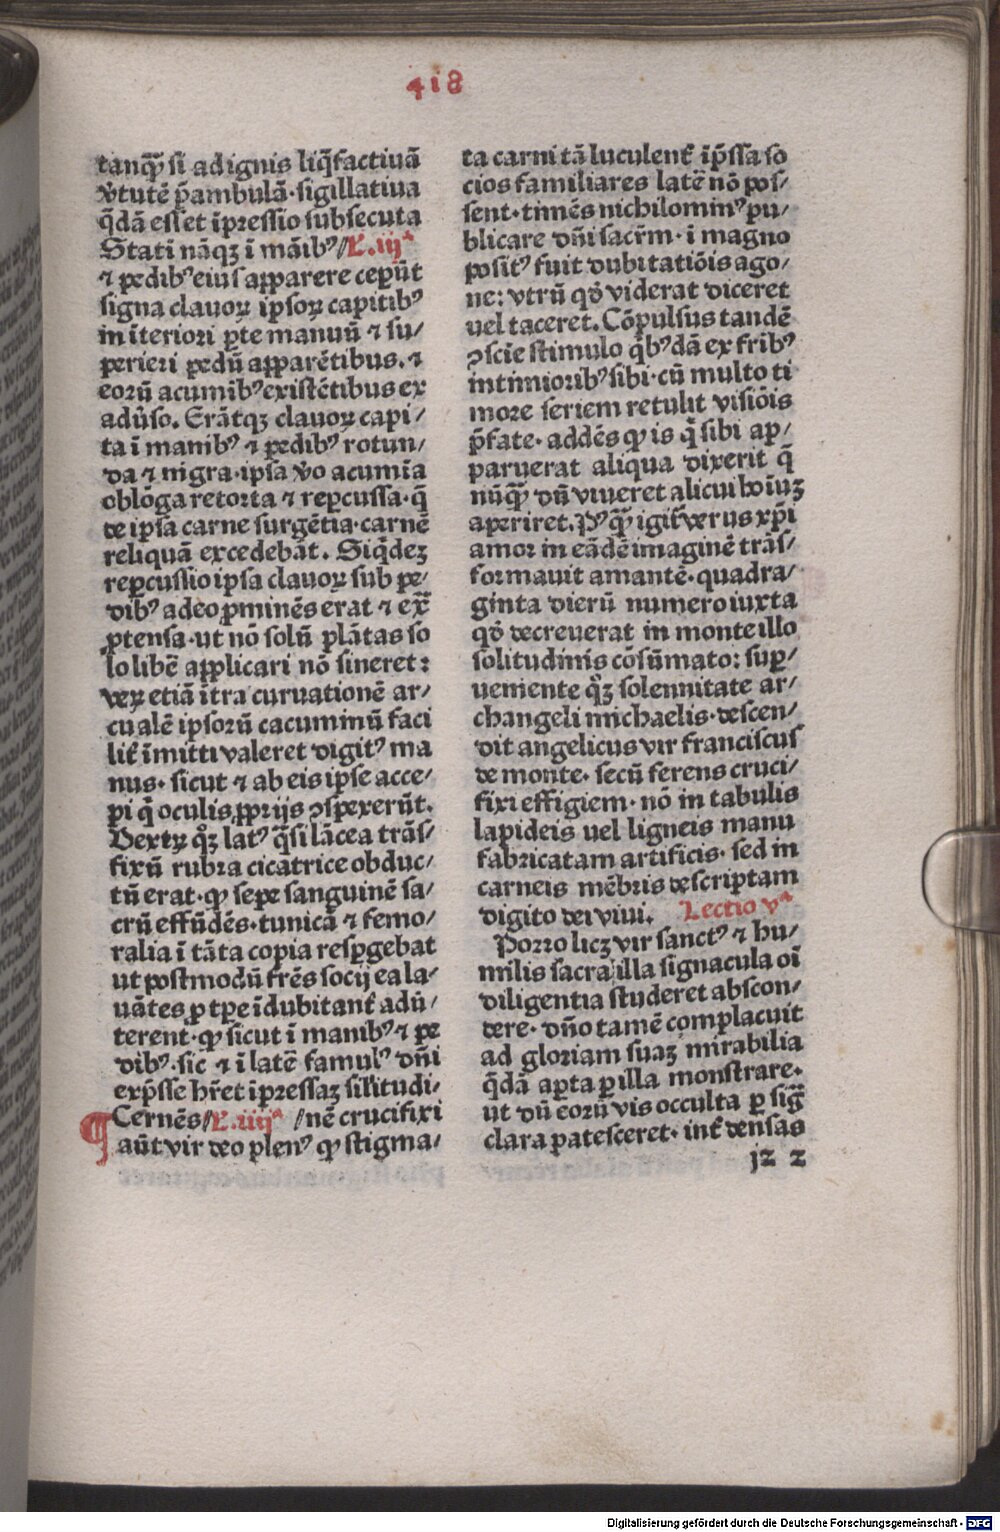 418
tanqꝫ̄ si ad ignis liq̄factiuā
v̓tutē p̄ambulā·sigillatiua
q̄dā esset īpressio subsecuta
Statī nāqꝫ ī māibꝰ // L.iijᵃ
⁊ pedibꝰ eius apparere ceperūt
signa clauoꝝ ipsoꝝ capitibꝰ
in īteriori ꝑte manuū ⁊ su/
perieri pedū apparētibus.⁊
eorū acumībꝰ existētibus ex
adu̓so. Erātqꝫ clauoꝝ capi/
ta ī manibꝰ ⁊ pedibꝰ rotun/
da ⁊ nigra·ipsa v̓o acumīa
oblōga retorta ⁊ repcussa·q̄
de ipsa carne surgētia·carnē
reliquā excedebāt. Siq̄deꝫ
repcussio ipsa clauoꝝ sub pe/
dibꝰ adeo ꝓminēs erat ⁊ ex̄
ꝓtensa·ut nō solū plātas so
lo libē applicari nō sineret:
veꝝ etiā ītra curuationē ar/
cualē ipsorū cacuminū faci
lit̓ īmitti valeret digitꝰ ma
nus·sicut ⁊ ab eis ipse acce/
pi q̄ oculis ꝓprijs ꝯspexerūt.
Dextꝝ qꝫ̊ latꝰ q̄si lācea trās/
fixū rubra cicatrice obduc/
tū erat·ꝙ sepe sanguinē sa/
crū effūdēs·tunicā ⁊ femo/
ralia ī tāta copia respgebat
ut postmodū frēs socij ea la/
uātes ꝓ tpe īdubitant̓ adu̓/
terent·ꝙ sicut ī manibꝰ ⁊ pe
dibꝰ·sic ⁊ ī latē famulꝰ dn̄i
exp̄sse hr̄et īpressaꝫ sil̓itudi/
Cernēs // L.iiijᵃ /nē crucifixi
aūt vir deo plenꝰ ꝙ stigma/
ta carni tā luculent̓ īp̄ssa so
cios familiares latē nō pos/
sent·timēs nichilominꝰ pu/
blicare dn̄i sacr̄m·ī magno
positꝰ fuit dubitatiōis ago/
ne: vtrū qd̓ viderat diceret
uel taceret. Cōpulsus tandē
ꝯscīe stimulo q̄bꝰdā ex fribꝰ
intimioribꝰ sibi·cū multo ti
more seriem retulit visiōis
p̄fate·addēs ꝙ is q̄ sibi ap/
paruerat aliqua dixerit q̄
nūqꝫ̄ dū viueret alicui hoīuꝫ
aperiret. Pꝰqꝫ̄ igit̓ verus xp̄i
amor in eādē imaginē trās/
formauit amantē·quadra/
ginta dierū numero iuxta
qd̓ decreuerat in monte illo
solitudinis cōsūmato: suꝑ/
ueniente qꝫ̊ solennitate ar/
changeli michaelis·descen/
dit angelicus vir franciscus
de monte·secū ferens cruci/
fixi effigiem·nō in tabulis
lapideis uel ligneis manu
fabricatam artificis·sed in
carneis mēbris descriptam
digito dei viui. Lectio vᵃ
Porro licꝫ vir sanctꝰ ⁊ hu/
milis sacra illa signacula oī
diligentia studeret abscon/
dere·dn̄o tamē complacuit
ad gloriam suaꝫ mirabilia
q̄dā aꝑta ꝑ illa monstrare·
ut dū eorū vis occulta ꝑ siḡ
clara patesceret·int̓ densas
jz z
Digitalisierung gefördert durch die Deutsche Forschungsgemeinschaft - DFG